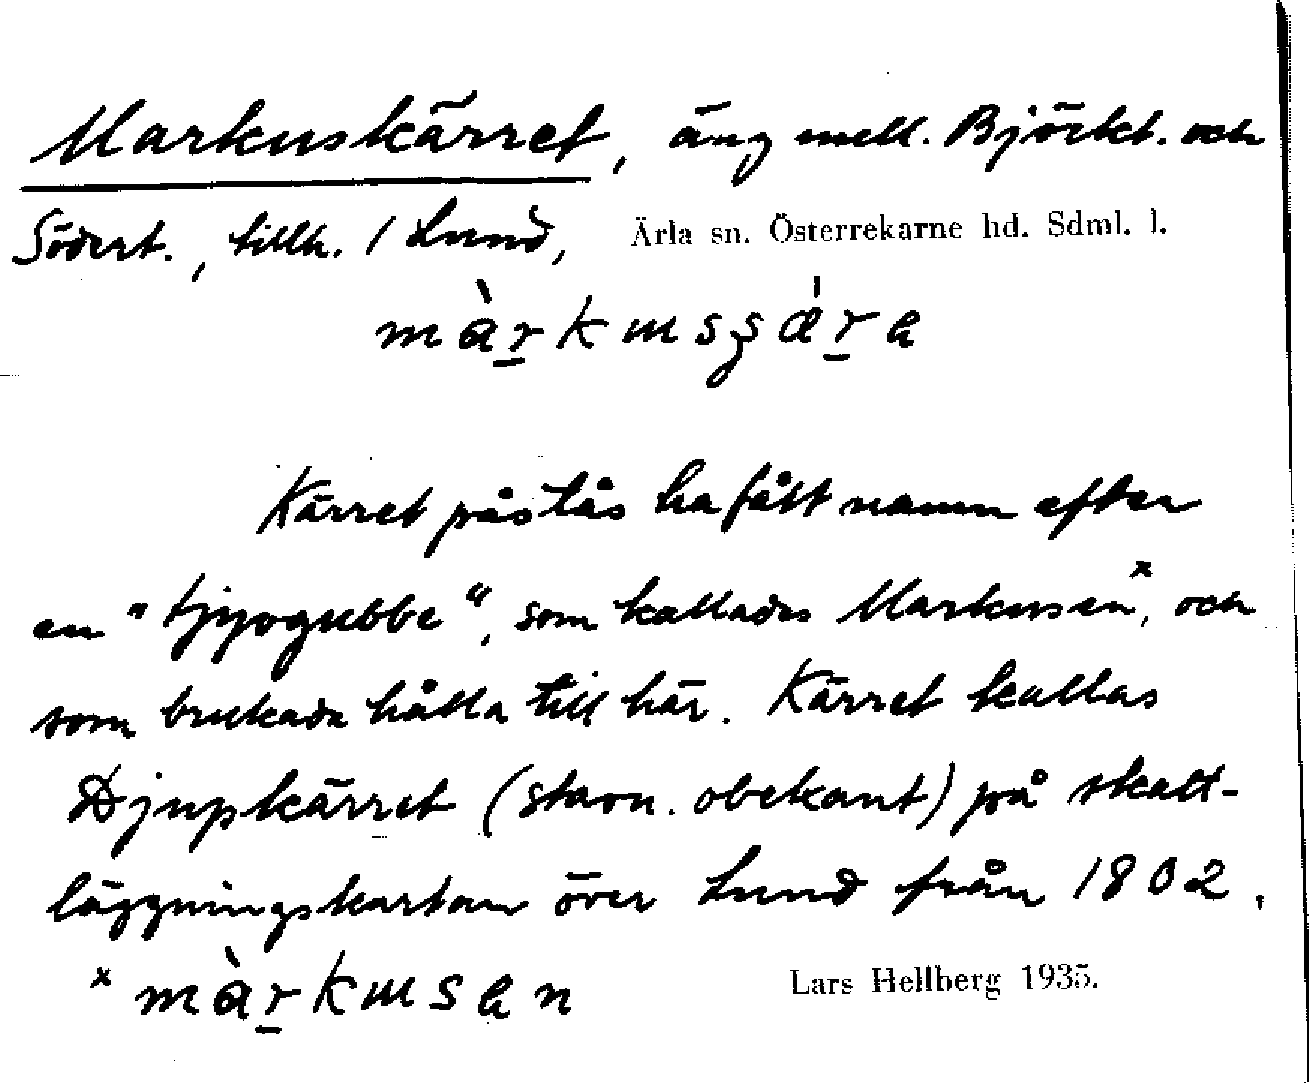 Markuskärret, äng mell. Björkt. och
Södert., tillh. 1 Lund, Ärla sn. Österrekarne hd. Sdml. l.
màrkɯsʂǽra
Kärret påstås ha fått namn efter
en "tjyvgubbe", som kallades Markusenˣ, och
som brukade hålla till här. Kärret kallas
Djupkärret (stavn. obekant) på skatt-
läggningskartan över Lund från 1802.
ˣ màrkɯsan Lars Hellberg 1935.